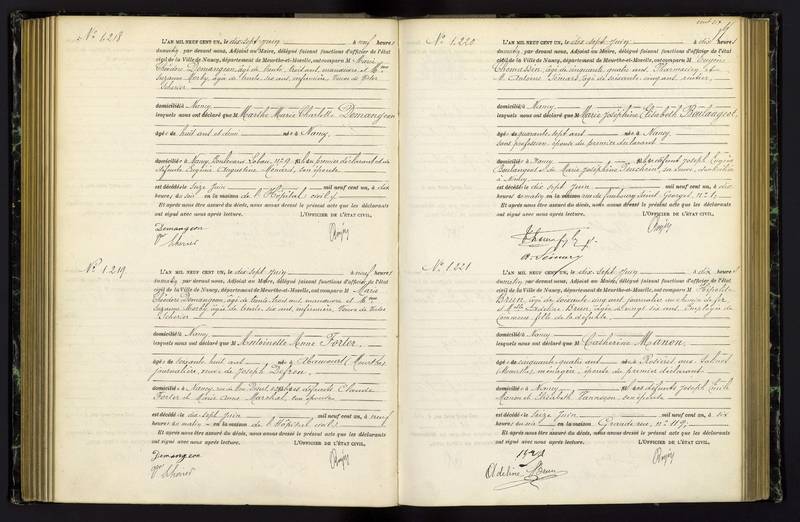 N° 1.218
L'AN MIL NEUF CENT UN, le dix sept Juin à neuf heures
du matin par devant nous, Adjoint au Maire, délégué faisant fonctions d'officier de l'état
civil de la Ville de Nancy, département de Meurthe-et-Moselle, ont comparu M Marie
Théodore Demangeon, âgé de trente huit ans, manœuvre et Mme
Suzanne Morhy, âgée de trente six ans, infirmière, Veuve de Victor
Scherier
domiciliés à Nancy
lesquels nous ont déclaré que M Marthe Marie Charlotte Demangeon
âgée de huit ans et demi née à Nancy,
domiciliée à Nancy, Boulevard Lobau, n° 29, fille du premier déclarant et de
défunte Eugénie Augustine Menard, son épouse
est décédée le Seize Juin mil neuf cent un, à dix
heures du soir en la maison de l'Hôpital civil
Et après nous être assuré du décès, nous avons dressé le présent acte que les déclarants
ont signé avec nous après lecture. L'OFFICIER DE L'ÉTAT CIVIL,
Demangeon
Vve Scherier
N° 1.219
L'AN MIL NEUF CENT UN, le dix sept Juin à neuf heures
du matin par devant nous, Adjoint au Maire, délégué faisant fonctions d'officier de l'état
civil de la Ville de Nancy, département de Meurthe-et-Moselle, ont comparu M Marie
Théodore Demangeon, âgé de trente huit ans, manœuvre et Mme
Suzanne Morhy âgée de trente six ans, infirmière, Veuve de Victor
Scherier
domiciliés à Nancy
lesquels nous ont déclaré que M Antoinette Anne Forter,
âgée de soixante huit ans, née à Abaucourt (Meurthe)
journalière, veuve de Joseph
domiciliée à Nancy, fille des défunts Claude
Forter et Marie Anne Marchal, son épouse
est décédée le dix sept Juin mil neuf cent un, à neuf
heures du matin en la maison de l'Hôpital civil
Et après nous être assuré du décès, nous avons dressé le présent acte que les déclarants
ont signé avec nous après lecture. L'OFFICIER DE L'ÉTAT CIVIL,
Demangeon
Vve Scherier
N° 1.220
L'AN MIL NEUF CENT UN, le dix sept Juin à dix heures
du matin par devant nous, Adjoint au Maire, délégué faisant fonctions d'officier de l'état
civil de la Ville de Nancy, département de Meurthe-et-Moselle, ont comparu M Eugène
Thomassin, âgé de cinquante quatre ans, Pharmacien et
M. Antoine âgé de soixante cinq ans, rentier,
domiciliés à Nancy
lesquels nous ont déclaré que M Marie Joséphine Elisabeth Boulangeot,
âgée de quarante sept ans née à Nancy
sans profession, épouse du premier déclarant
domiciliée à Nancy fille de défunt Joseph Eugène
Boulangeot et de Marie Joséphine
à Nancy
est décédée le dix sept Juin mil neuf cent un, à dix
heures du matin en la maison rue du faubourg Saint Georges, n° 1,
Et après nous être assuré du décès, nous avons dressé le présent acte que les déclarants
ont signé avec nous après lecture. L'OFFICIER DE L'ÉTAT CIVIL,
N° 1.221
L'AN MIL NEUF CENT UN, le dix sept Juin à dix heures
du matin par devant nous, Adjoint au Maire, délégué faisant fonctions d'officier de l'état
civil de la Ville de Nancy, département de Meurthe-et-Moselle, ont comparu M
Brun, âgé de soixante cinq ans, journalier au chemin de fer
et Mlle Adeline Brun, âgée de vingt six ans, Employée de
Commerce, fille de la défunte
domiciliés à Nancy
lesquels nous ont déclaré que M Catherine Manon,
âgée de cinquante quatre ans née à Rosières aux Salines
(Meurthe) ménagère, épouse du premier déclarant
domiciliée à Nancy, fille des défunts Joseph
Manon et Elisabeth son épouse
est décédée le Seize Juin mil neuf cent un, à six
heures du soir en la maison Grande rue, n° 119,
Et après nous être assuré du décès, nous avons dressé le présent acte que les déclarants
ont signé avec nous après lecture. L'OFFICIER DE L'ÉTAT CIVIL,
Adeline Brun